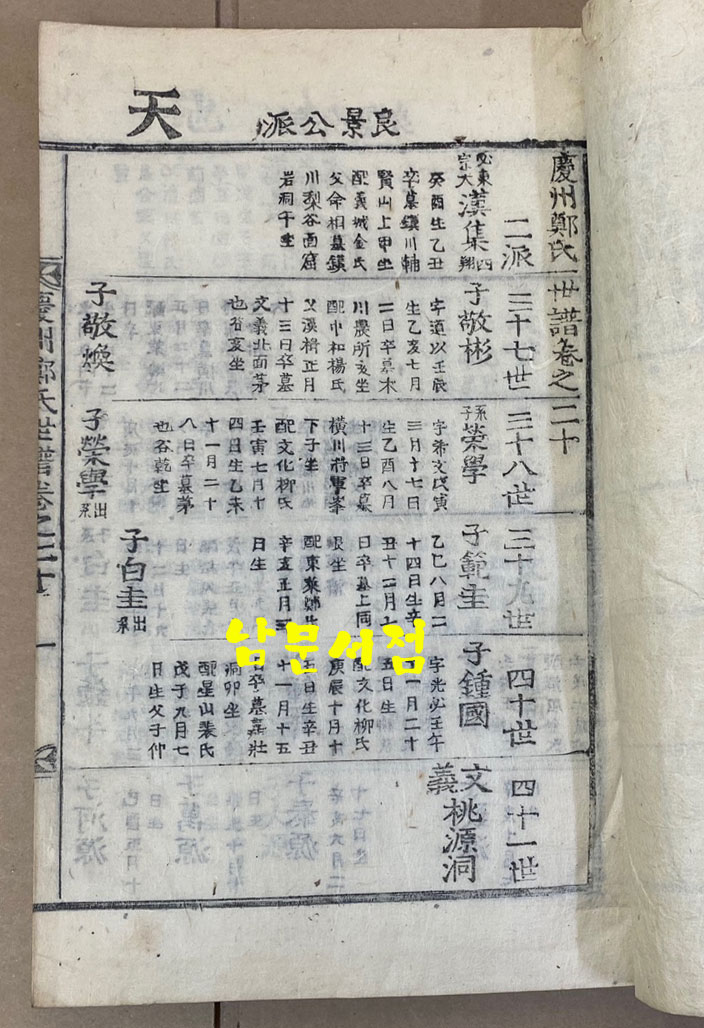 天
良景公派
慶州鄭氏世譜卷之二十
二派
三十七世
三十八世
三十九世
四十世
四十一世
漢集
癸酉生乙丑
卒墓鎭川輔
賢山上甲坐
配義城金氏
父命相墓鎭
川梨谷面窟
岩洞午坐
子敬彬
字道以壬辰
生乙亥七月
二日卒墓木
川農所亥坐
配中和楊氏
父漢楫正月
十三日卒墓
文義北面茅
也谷亥坐
子敬煥
系子
榮學
字希文戊寅
三月十七日
生乙酉八月
十三日卒墓
橫川將軍峯
下子坐
配文化柳氏
壬寅七月十
四日生乙未
十一月二十
八日卒墓茅
也谷乾坐
子榮學出系
子範圭
乙巳八月二
十四日生辛
丑十二月十
日卒墓上同
艮坐
配東萊鄭氏
辛亥正月三
日生
子白圭出系
子鍾國
字光必壬午
十一月二十
五日生
配文化柳氏
庚辰十月十
五日生辛丑
十一月十五
日卒墓嘉壯
洞卯坐
配星山裴氏
戊子九月七
日生父子仲
文義
桃源洞
慶州鄭氏世譜卷之二十
一
남문서점